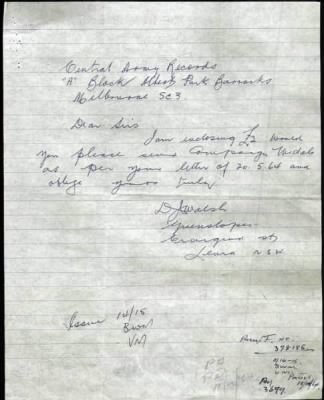 Central Army Records
"A" Block Albert Park Barracks
Melbourne SC3.
Dear Sirs
I am enclosing £2 would
you please send Campaign Medals
as per your letter of 20.5.64 and
oblige yours truly
D J Welsh
Greenslopes
Georgina St
Leura NSW
Issue 14/15
BWM
VM
Receipt no.
378186
14/15
BWM
VM
3694